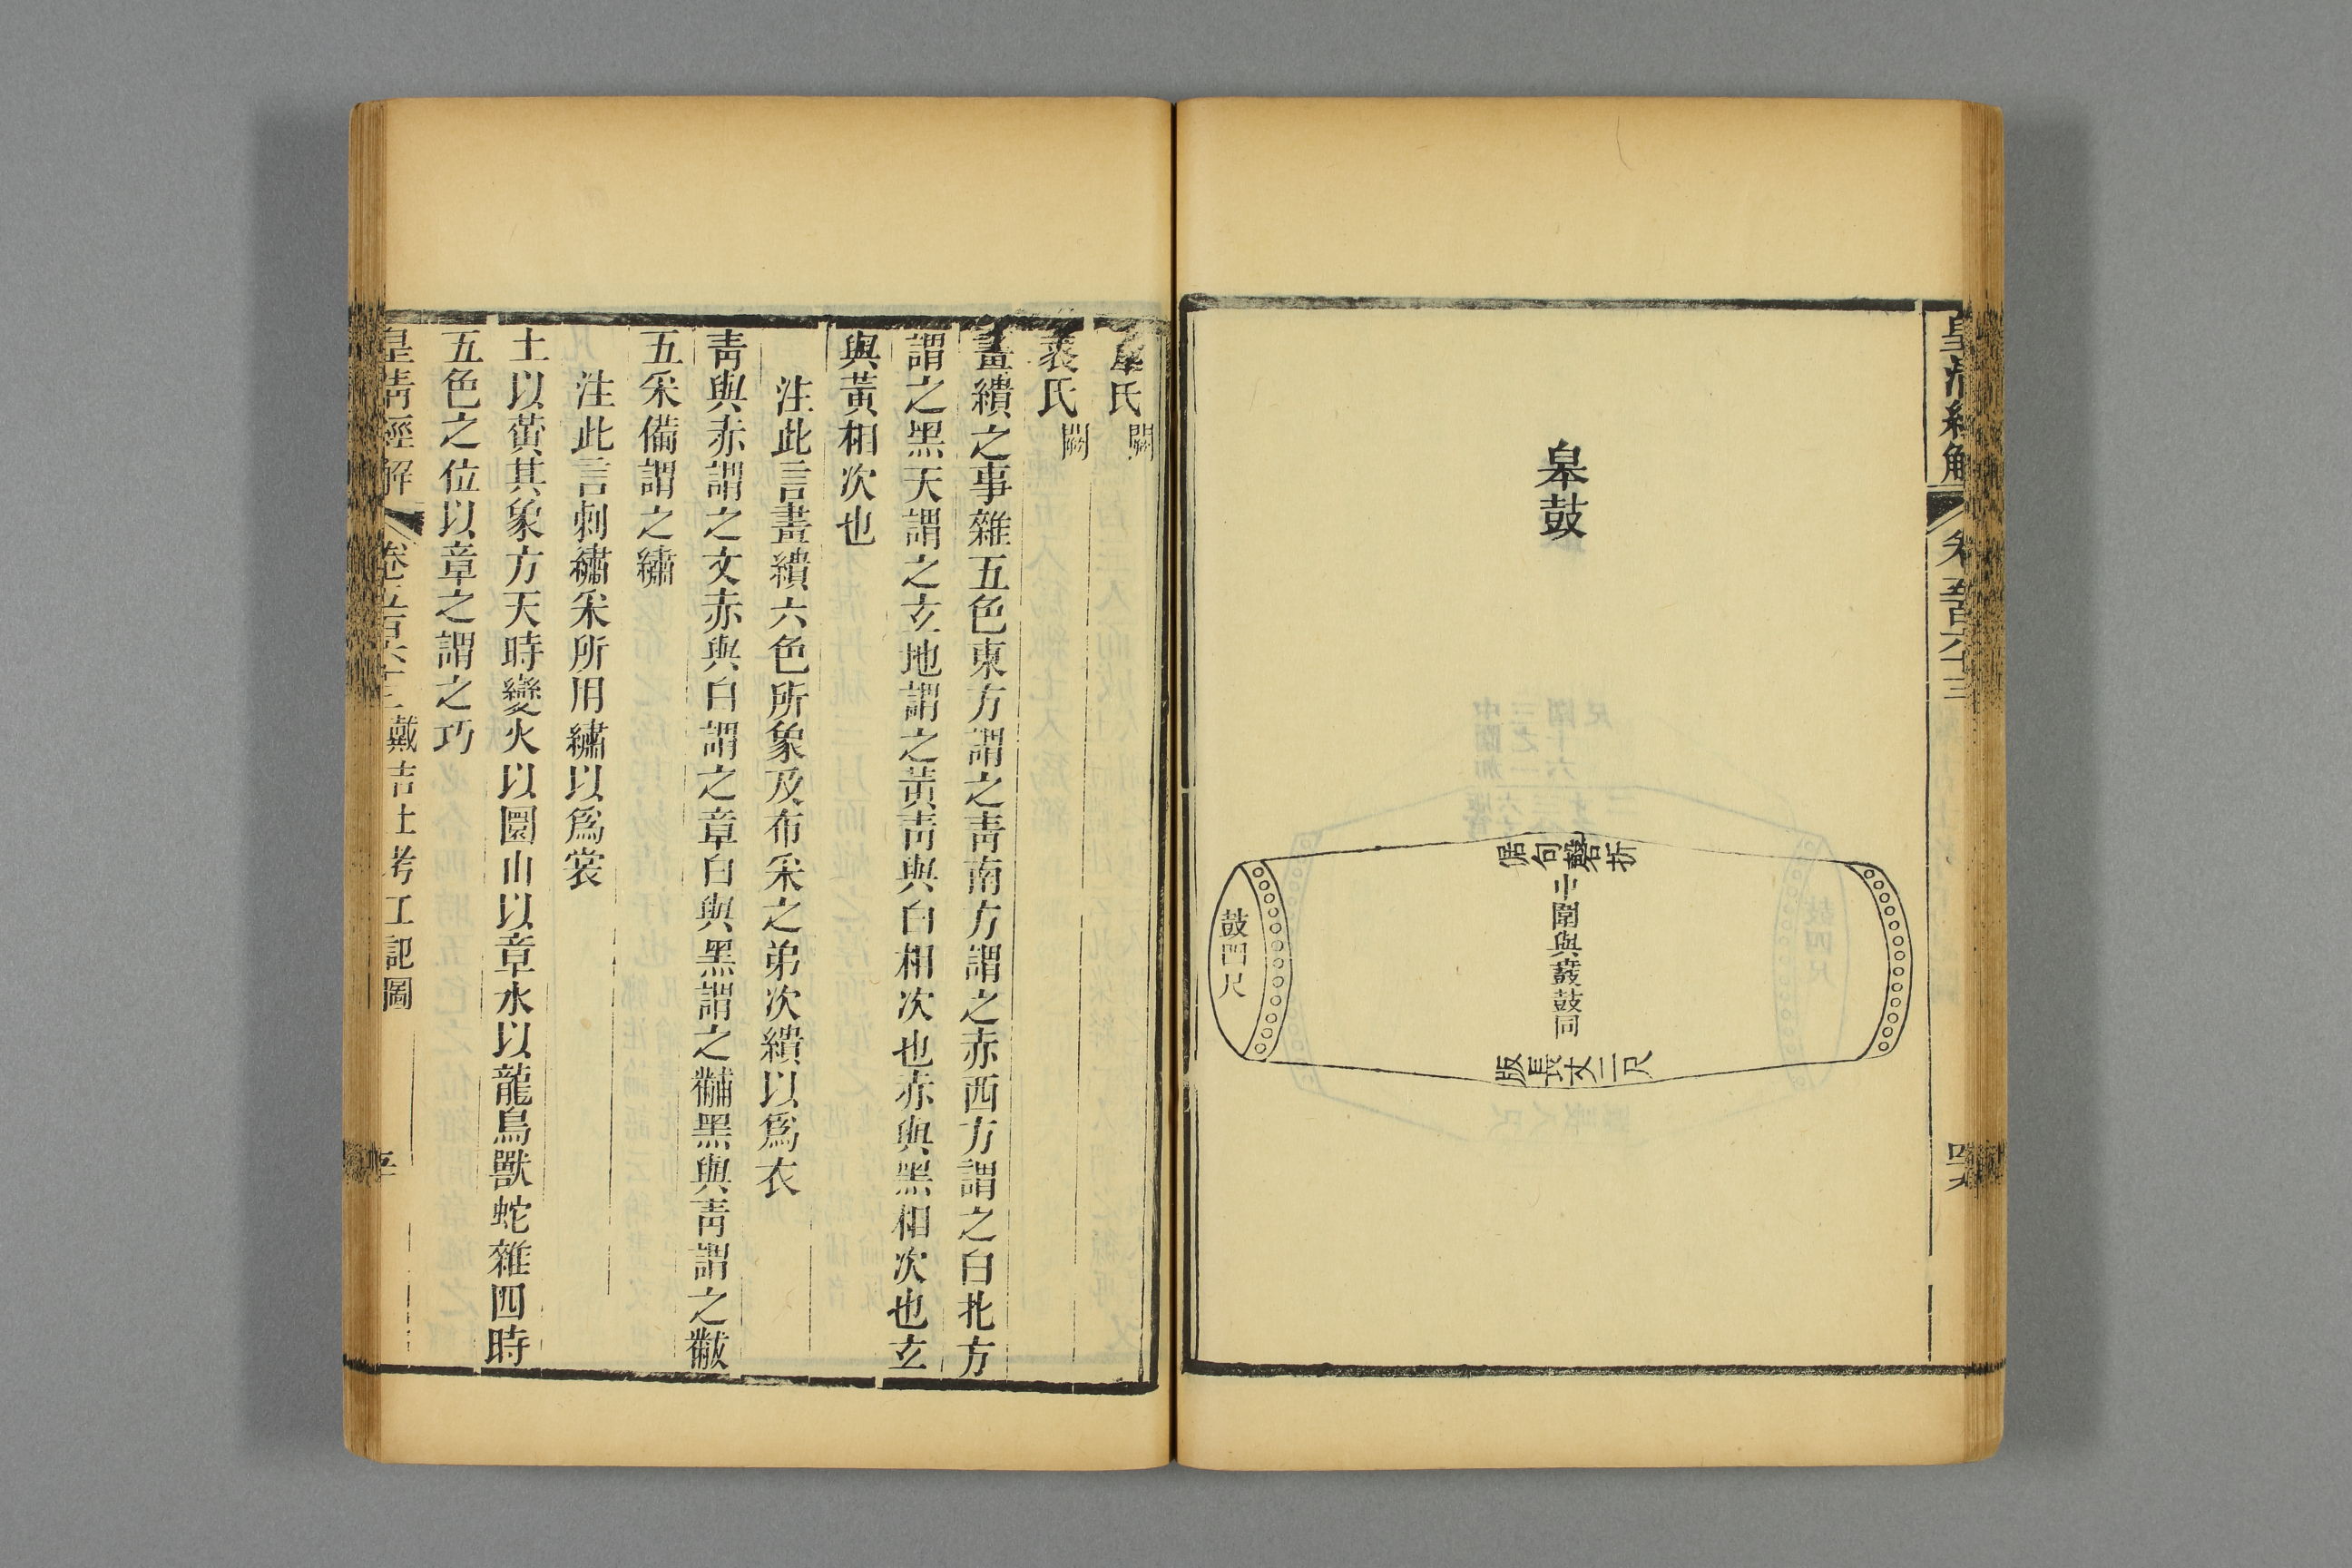 皇清經解
卷五百六十三
皋鼓
倨句磬折
中圍與鼖鼓同
鼓四尺
版長丈二尺
韋氏闕
裘氏闕
畫繢之事雜五色東方謂之靑南方謂之赤西方謂之白北方
謂之黑天謂之玄地謂之黃靑與白相次也赤與黑相次也玄
與黃相次也
注此言畫繢六色所象及布采之弟次繢以爲衣
靑與赤謂之文赤與白謂之章白與黑謂之黼黑與靑謂之黻
五采備謂之繡
注此言刺繡采所用繡以爲裳
土以黃其象方天時變火以圜山以章水以龍鳥獸蛇雜四時
五色之位以章之謂之巧
皇淸經解 卷五百六十三 戴吉士考工記圖